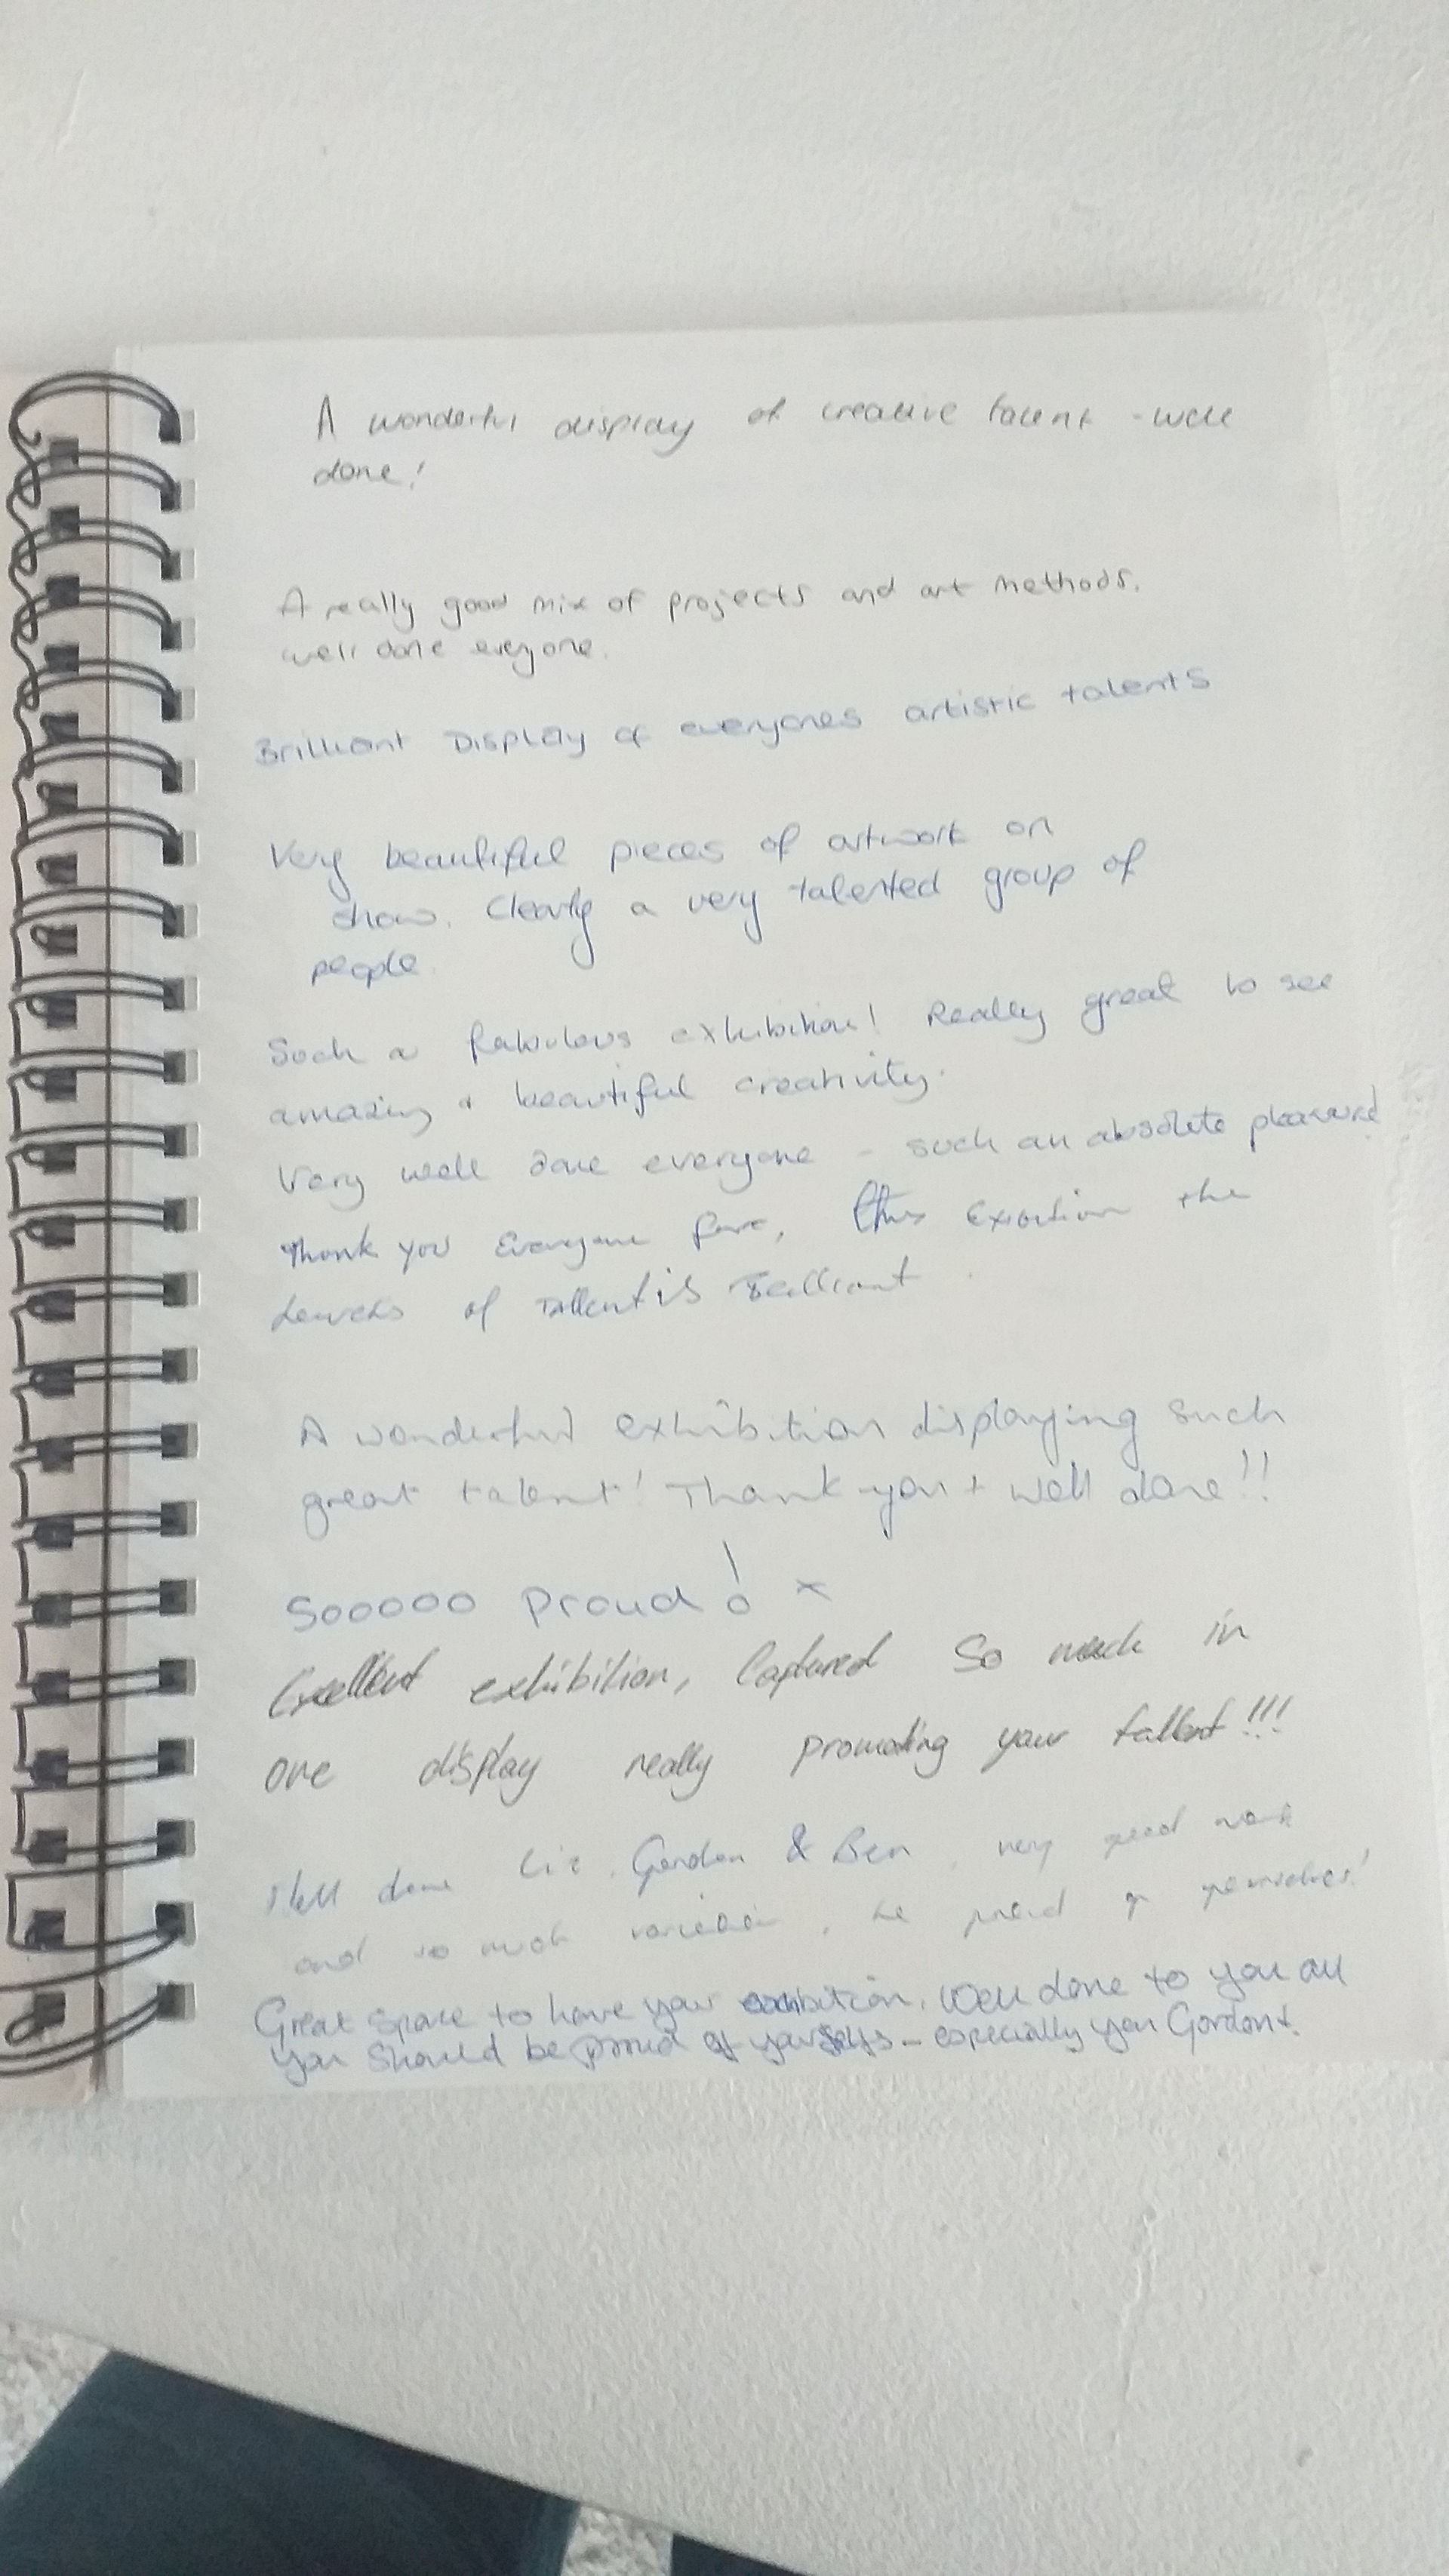 A wonderful display of creative talent - well
done!
A really good mix of projects and art methods.
well done everyone.
Brilliant Display of everyones artistic talents
Very beautiful pieces of artwork on
show. Clearly a very talented group of
people.
Such a fabulous exhibition! Really great to see
amazing & beautiful creativity.
Very well done everyone - such an absolute pleasure!
Thank you Everyone for, this the
of Tallent is Brilliant
A wonderful exhibition displaying such
great talent! Thank you + well done!!
Sooooo Proud! x
Excellent exhibition, Captured so much in
one display really promoting your tallent!!!
Well done Liz, Gordon & Ben, very good work
and so much variation, be proud of yourselves!
Great space to have your exhibition. Well done to you all
you should be proud of yourselfs - especially you Gordon